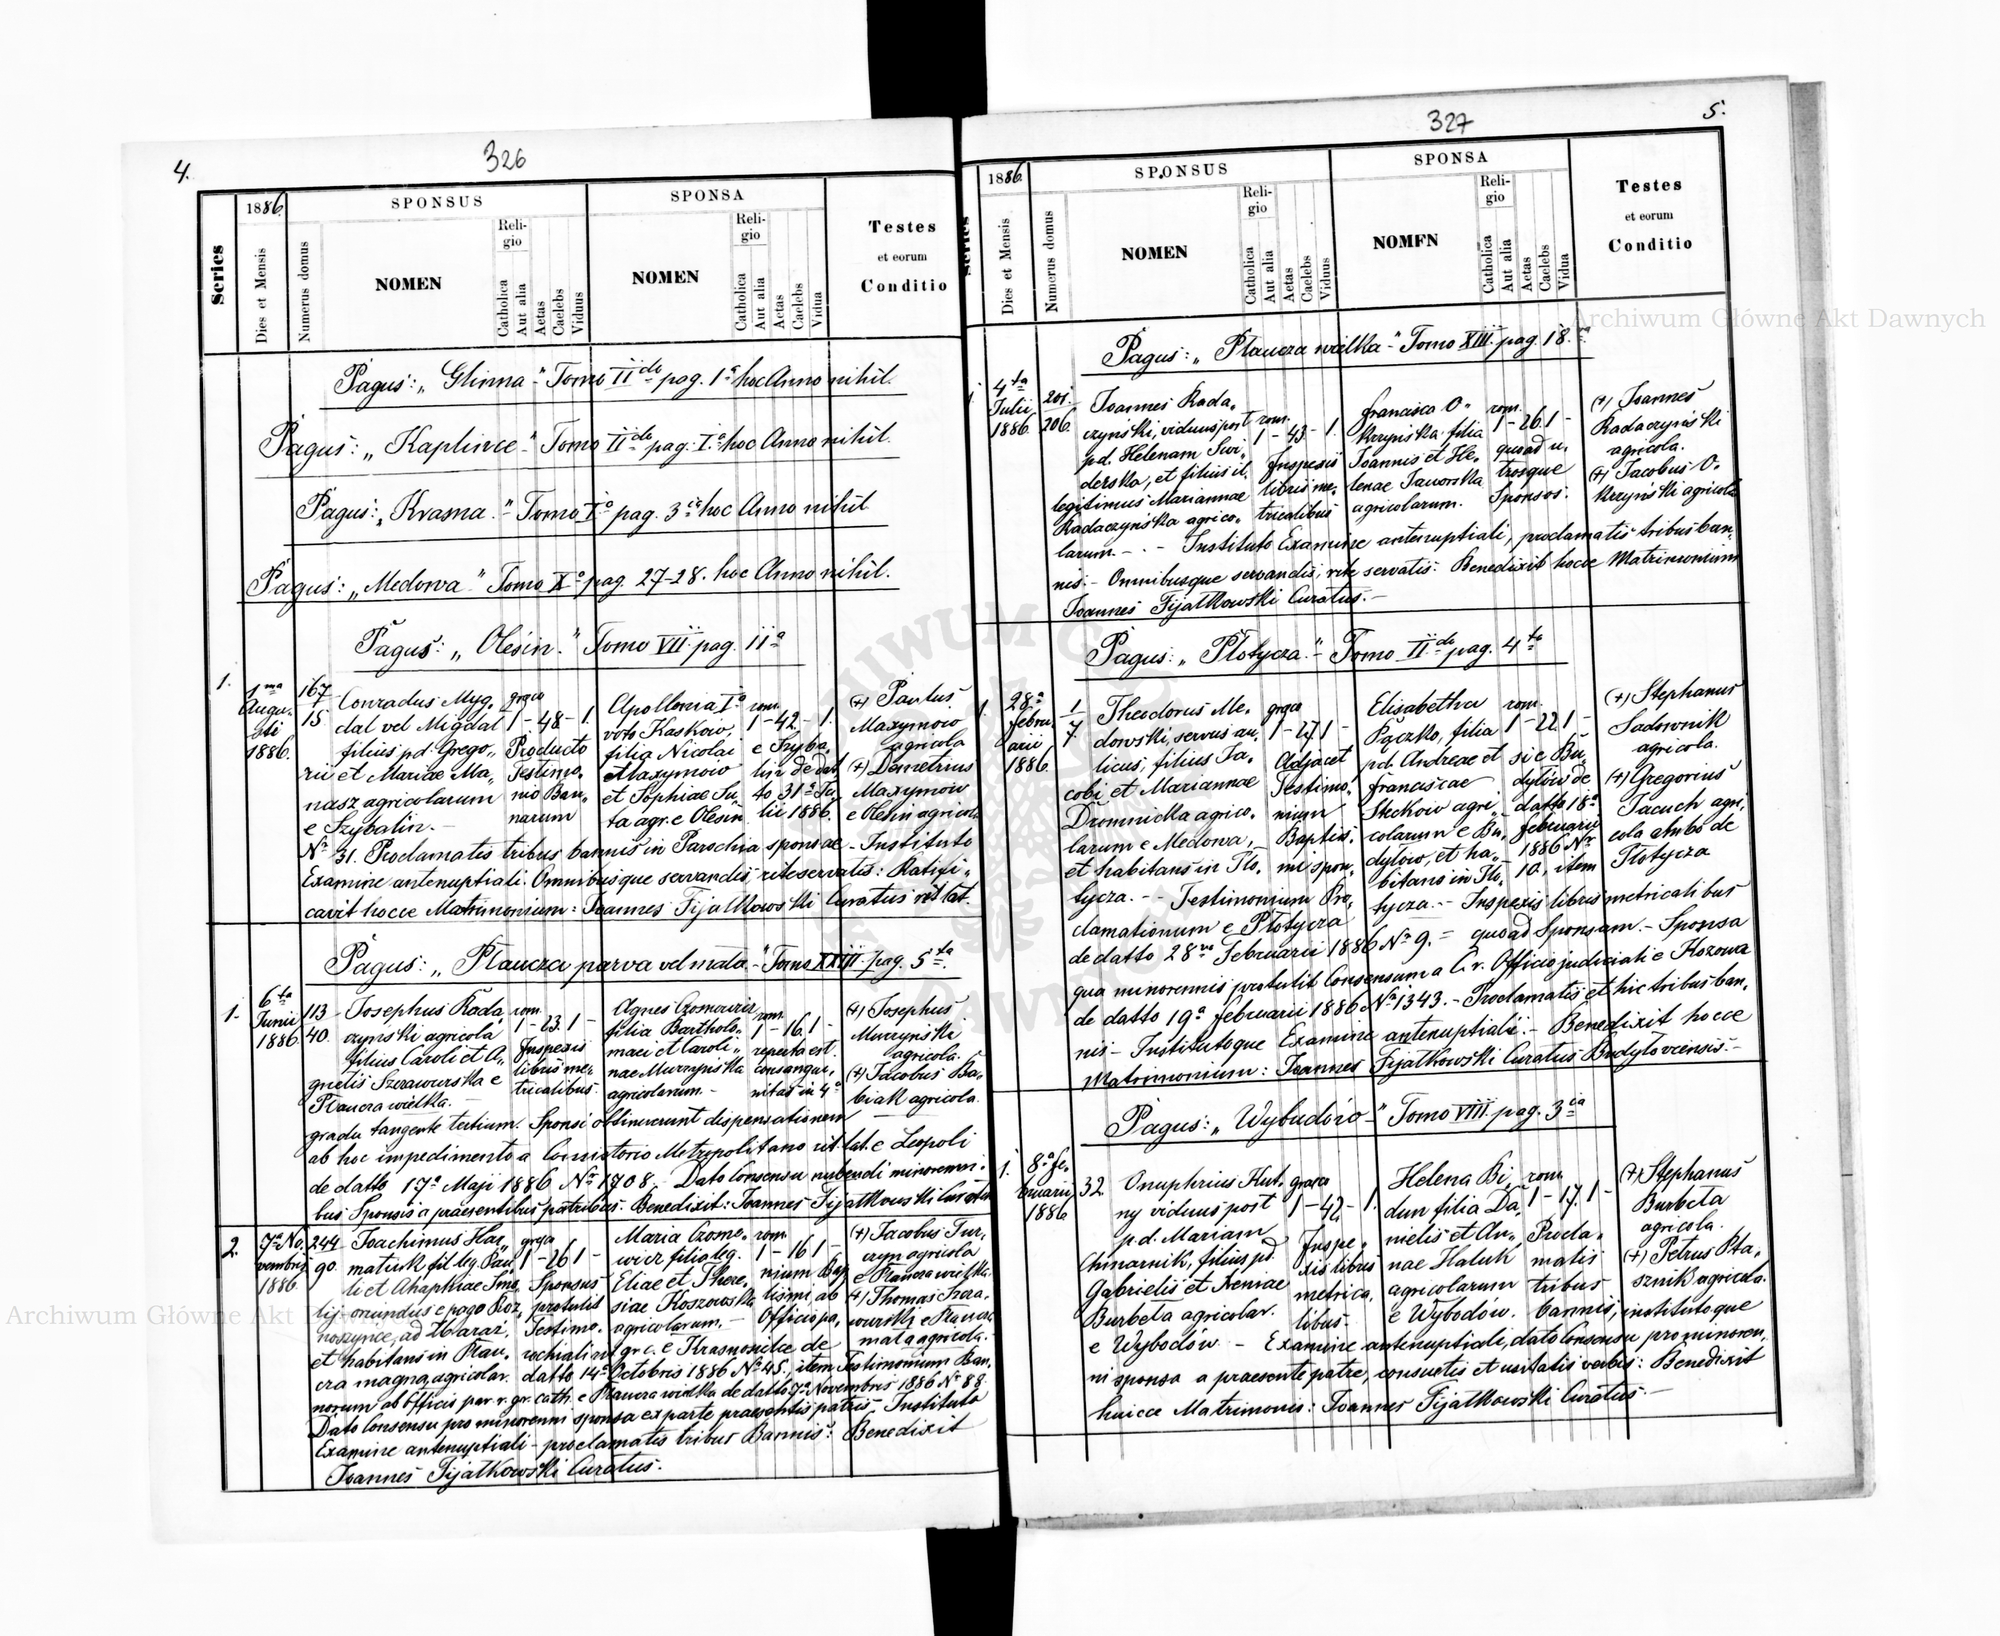 4.
326
Series
1886.
Dies et Mensis
Numerus domus
SPONSUS
NOMEN
Reli-
gio
Catholica
Aut alia
Aetas
Caelebs
Viduus
SPONSA
NOMEN
Reli-
gio
Catholica
Aut alia
Aetas
Caelebs
Vidua
Testes
et eorum
Conditio
Pagus: „ Glinna " Tomo IIdo pag. 1a hoc Anno nihil.
Pagus: „ Kaplince " Tomo IIdo pag. I.a hoc Anno nihil.
Pagus: „ Krasna. " Tomo Io pag. 3cia hoc Anno nihil
Pagus: „ Medowa " Tomo Xo pag. 27-28. hoc Anno nihil.
Pagus: „ Olesin. " Tomo VII pag. IIa
1.
1ma
Augu.
sti
1886.
167
15
Conradus Myg.
dal vel Migdal
filius pd. Grego„
rii et Mariae Ma„
nasz agricolarum
e Szybalin. —
graeca
1 - 48 - 1.
Producto
Testimo.
nio Ban„
narum
Apollonia Io
voto Kaskow,
filia Nicolai
Maxymow
et Sophiae Ju„
ta agr. e Olesin
rom.
1 - 42 - 1.
e Szyba.
lin de dat
to 31a Ju
lii 1886.
(+) Paulus
Maxymow
agricola
(+) Demetrius
Maxymow
e Olesin agricola
No 31. Proclamatis tribus bannis in Parochia sponsae - Instituto
Examine antenuptiali. Omnibusque servandis rite servatis: Ratifi„
cavit hocce Matrimonium: Joannes Fijałkowski Curatus rit lat.
Pagus: „ Płaucza parva vel mała. " Tomo XXIII. pag. 5ta
1.
6ta
Junii
1886
113
40.
Josephus Rada
czyński agricola
filius Caroli et A„
gnetis Szorawurska e
Płaucza wielka. —
rom.
1 - 23. 1 -
Inspexis
libris me„
tricalibus
Agnes Czornowicz
filia Bartholo„
maei et Caroli„
nae Murzyńska
agricolarum. —
rom.
1 - 16. 1 -
reperta est
consangui„
nitas in 4o
(+) Josephus
Murzyński
agricola.
(+) Jacobus Ba„
biak agricola.
gradu tangente tertium. Sponsi obtinuerunt dispensationem
ab hoc impedimento a Consistorio Metropolitano rit. lat. e Leopoli
de datto 17a Maji 1886 No 1708. Dato Consensu nubendi minorenni„
bus Sponsis a praesentibus patribus. Benedixit: Joannes Fijałkowski Curatus
2.
7a No.
vembris
1886.
244
90.
Joachimus Har„
matiuk fil leg. Pau„
li et Ahaphiae
oriundus e pago Roz„
noszynce, ad Zbaraż,
et habitans in Płau„
cza magna, agricolar.
graeca
1 - 26 1 -
Sponsus
protulit
Testimo„
Maria Czorno„
wicz filia leg.
Eliae et There„
siae Koszowska
agricolarum. —
rom.
1 - 16 1 -
nium Bap
tismi ab
Officio pa„
(+) Jacobus Tur„
czyn agricola
e Płaucza wielka.
(+) Thomas
e Płaucza
mała agricola. —
rochiali rit gr. c. e Krasnosielce de
datto 14a Octobris 1886 No 45, item Testimonium Ban„
norum ab Officio par. r. gr. cath. e Płaucza wielka de datto 7a Novembris 1886 No 88.
Dato Consensu pro minorenni sponsa ex parte praesentis patris - Instituto
Examine antenuptiali - proclamatis tribus Bannis: Benedixit
Joannes Fijałkowski Curatus.
327
5.
Series
1886.
Dies et Mensis
Numerus domus
SPONSUS
NOMEN
Reli-
gio
Catholica
Aut alia
Aetas
Caelebs
Viduus
SPONSA
NOMEN
Reli-
gio
Catholica
Aut alia
Aetas
Caelebs
Vidua
Testes
et eorum
Conditio
Pagus: „ Płaucza wielka " Tomo XIII. pag. 18.va
1.
4ta
Julii
1886.
201.
206.
Joannes Rada„
czyński, viduus post
pd. Helenam Swi„
derska, et filius il„
legitimus Mariannae
Radaczyńska agrico„
larum. - . -
rom.
1 - 43 - 1.
Inspexis
libris me„
tricalibus
Francisca O„
krzyńska filia
Joannis et He„
lenae Jaworska
agricolarum.
rom.
1 - 26. 1 -
quoad u„
trosque
Sponsos.
(+) Joannes
Radaczyński
agricola.
(+) Jacobus O„
krzyński agricola
Instituto Examine antenuptiali, proclamatis tribus ban„
nis. - Omnibusque servandis, rite servatis: Benedixit hocce Matrimonium
Joannes Fijałkowski Curatus. —
Pagus: „ Płotycza. " Tomo IIdo pag. 4ta
1.
28a
Febru„
arii
1886.
1
7
Theodorus Me„
dowski, servus au„
licus, filius Ja„
cobi et Mariannae
Dromnicka agrico„
larum e Medowa,
et habitans in Pło„
tycza. - -
graeca
1 - 27. 1 -
Adjacet
Testimo„
nium
Baptis„
mi spon„
Elisabetha
Pączko, filia
pd. Andreae et
Franciscae
Steckow agri„
colarum e Bu„
dyłow, et ha„
bitans in Pło„
tycza. -
rom.
1 - 22. 1 -
si e Bu„
dyłów de
datto 18a
Februarii
1886 No
10., item
(+) Stephanus
Sadownik
agricola.
(+) Gregorius
Jacuch agri„
cola ambo de
Płotycza
Testimonium Pro„
clamationum e Płotycza
de datto 28va Februarii 1886 No 9. =
Inspexis libris metricalibus
quoad Sponsam. - Sponsa
qua minorennis protulit Consensum a C. r. Officio judiciali e Kozowa
de datto 19a Februarii 1886 No 1343. - Proclamatis et hic tribus ban„
nis - Institutoque Examine antenuptiali: - Benedixit hocce
Matrimonium: Joannes Fijałkowski Curatus Budyłoviensis. —
Pagus: „ Wybudów " Tomo VIII. pag. 3cia
1.
8a Fe„
bruarii
1886
32.
Onuphrius Hut„
ny viduus post
pd. Mariam
Chinarnik, filius pd.
Gabrielis et Xeniae
Burbeta agricolar.
e Wybodów. -
graeca
1 - 42. - 1.
Inspe„
xis libris
metrica„
libus.
Helena Bi„
dun filia Da„
nielis et An„
nae Haluk
agricolarum
e Wybodów.
rom.
1 - 17. 1 -
Procla„
matis
tribus
bannis, institutoque
(+) Stephanus
Burbela
agricola.
(+) Petrus Pta„
sznik agricola.
Examine antenuptiali, dato Consensu pro minoren„
ni sponsa a praesente patre, consuetis et usitatis verbis: Benedixit
huicce Matrimonio: Joannes Fijałkowski Curatus. —
Archiwum Główne Akt Dawnych
Archiwum Główne Akt Dawnych